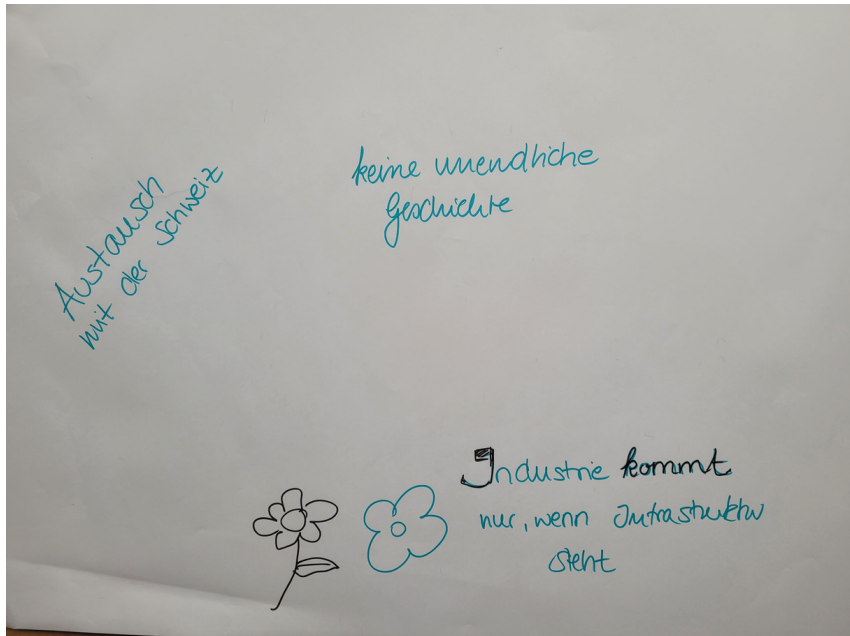 Austausch
mit der Schweiz
keine unendliche
Geschichte
Industrie kommt
nur, wenn Infrastruktur
steht